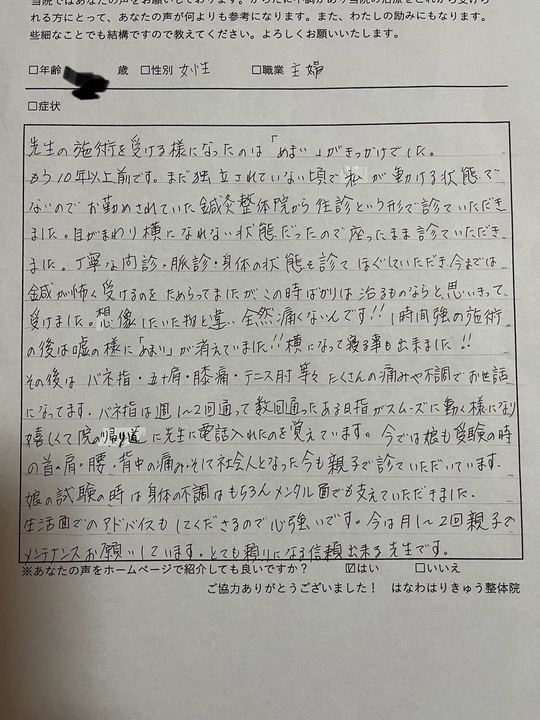 当院ではあなたの声をお願いしております。からだに不調があり当院の治療をこれから受けら
れる方にとって、あなたの声が何よりも参考になります。また、わたしの励みにもなります。
些細なことでも結構ですので教えてください。よろしくお願いいたします。
□年齢 歳 □性別 女性 □職業 主婦
□症状
先生の施術を受ける様になったのは「めまい」がきっかけでした。
もう10年以上前です。まだ独立されていない頃で私が動ける状態で
ないのでお勤めされていた鍼灸整体院から往診という形で診ていただき
ました。目がまわり横になれない状態だったので座ったまま診ていただき
ました。丁寧な問診・脈診・身体の状態を診てほぐしていただき今までは
鍼が怖く受けるのをためらってましたがこの時ばかりは治るものならと思いきって
受けました。想像していた物と違い全然痛くないんです!!1時間強の施術
の後は嘘の様に「めまい」が消えていました!!横になって寝る事も出来ました!!
その後はバネ指・五十肩・膝痛・テニス肘等々たくさんの痛みや不調でお世話
になってます。バネ指は週1〜2回通って数回通ったある日指がスムーズに動く様になり
嬉しくて院の帰り道に先生に電話入れたのを覚えています。今では娘も受験の時
の首・肩・腰・背中の痛みそして社会人となった今も親子で診ていただいています。
娘の試験の時は身体の不調はもちろんメンタル面でも支えていただきました。
生活面でのアドバイスもしてくださるので心強いです。今は月1〜2回親子で
メンテナンスお願いしています。とても頼りになる信頼出来る先生です。
※あなたの声をホームページで紹介しても良いですか? ☑はい □いいえ
ご協力ありがとうございました! はなわはりきゅう整体院